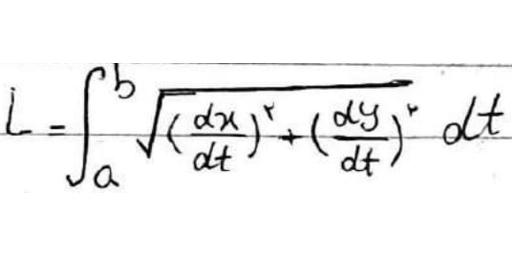 L = ∫_a^b √((dx/dt)^٢ + (dy/dt)^٢) dt